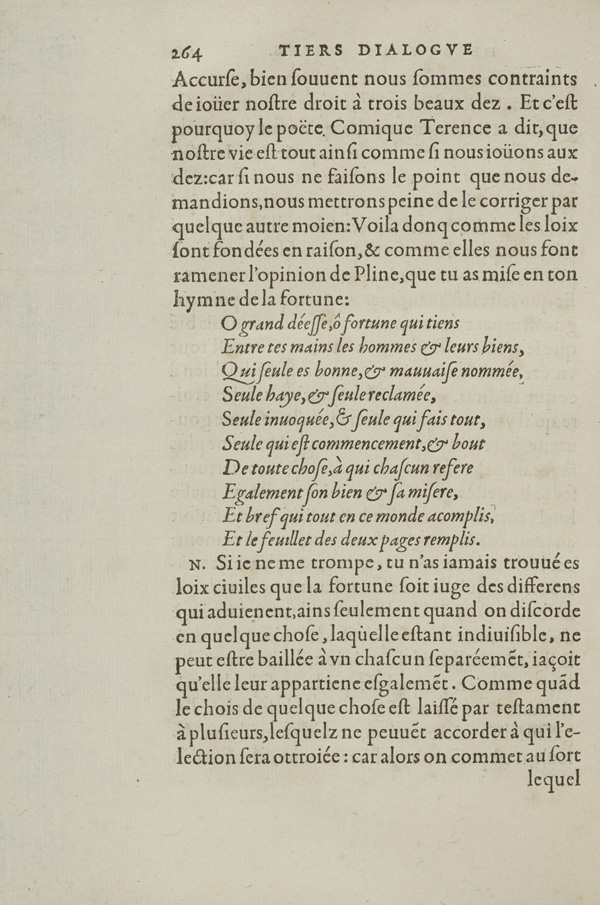 264 TIERS DIALOGVE
Accurſe, bien ſouuent nous ſommes contraints
de ioüer noſtre droit à trois beaux dez . Et c'eſt
pourquoy le poëte. Comique Terence a dit, que
noſtre vie eſt tout ainſi comme ſi nous ioüons aux
dez: car ſi nous ne faiſons le point que nous de-
mandions, nous mettrons peine de le corriger par
quelque autre moien: Voila donq comme les loix
ſont fondées en raiſon, & comme elles nous font
ramener l'opinion de Pline, que tu as miſe en ton
hymne de la fortune:
O grand déeſſe, ô fortune qui tiens
Entre tes mains les hommes & leurs biens,
Qui ſeule es bonne, & mauuaiſe nommée,
Seule haye, & ſeule reclamée,
Seule inuoquée, & ſeule qui fais tout,
Seule qui eſt commencement, & bout
De toute choſe, à qui chaſcun refere
Egalement ſon bien & ſa miſere,
Et bref qui tout en ce monde acomplis,
Et le feuillet des deux pages remplis.
N. Si ie ne me trompe, tu n'as iamais trouué es
loix ciuiles que la fortune ſoit iuge des differens
qui aduienent, ains ſeulement quand on diſcorde
en quelque choſe, laquelle eſtant indiuiſible, ne
peut eſtre baillée à vn chaſcun ſeparéemẽt, iaçoit
qu'elle leur appartiene eſgalemẽt. Comme quãd
le chois de quelque choſe eſt laiſſé par teſtament
à pluſieurs, leſquelz ne peuuẽt accorder à qui l'e-
lection ſera ottroiée: car alors on commet au ſort
lequel